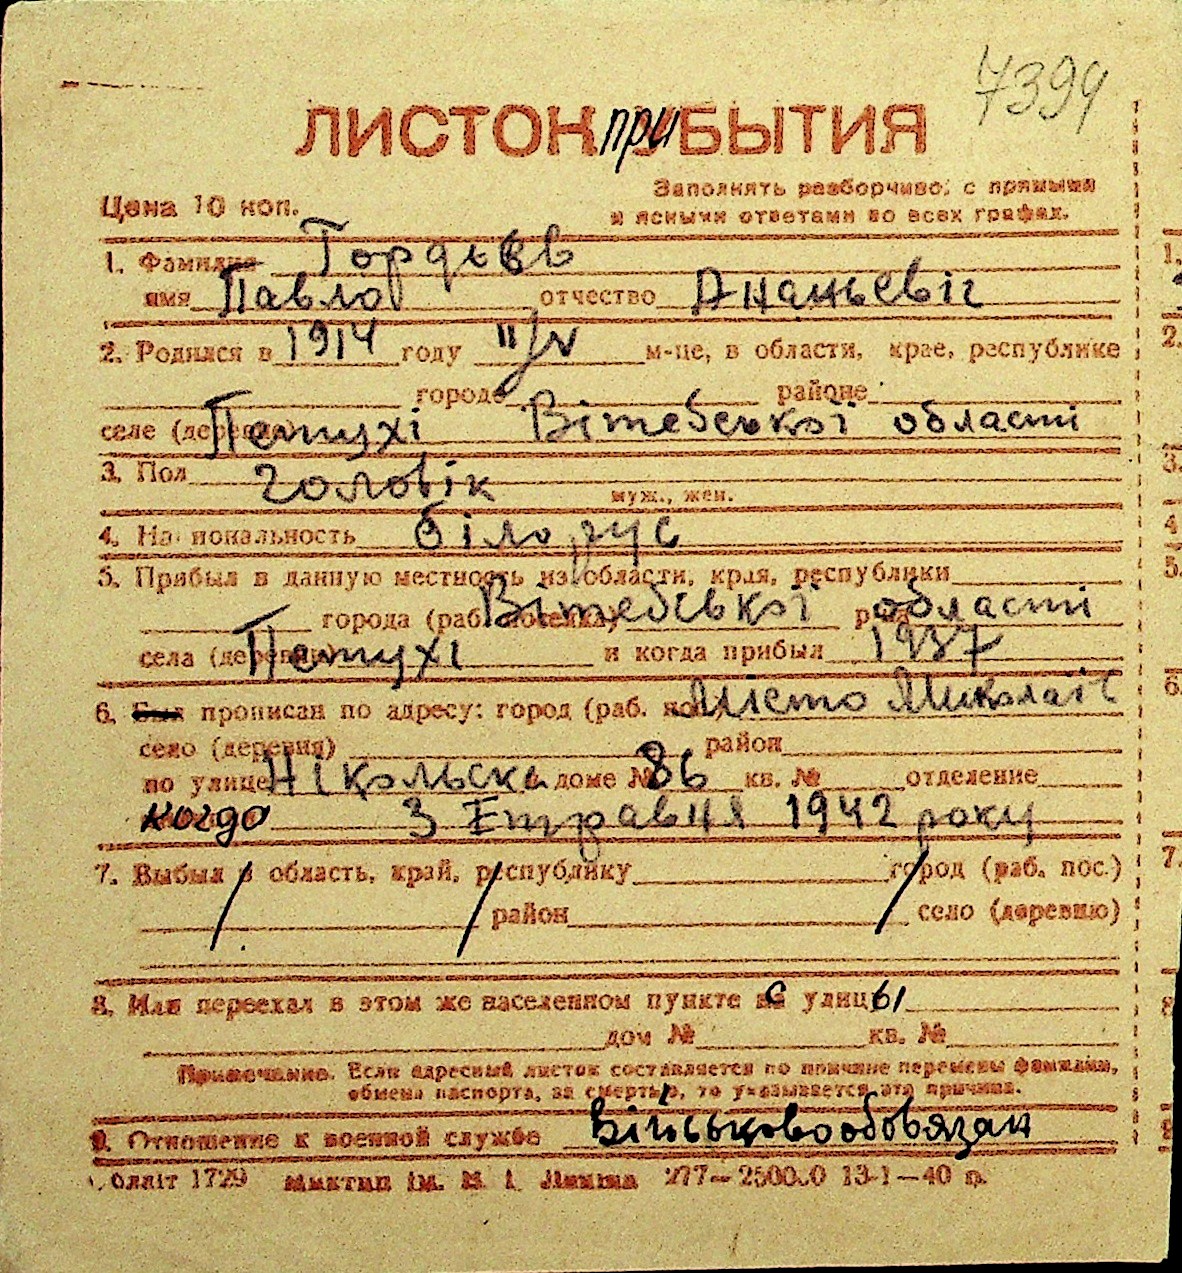 7399
ЛИСТОК при УБЫТИЯ
Цена 10 коп.
Заполнять разборчиво, с прямыми
и ясными ответами во всех графах.
1. Фамилия Гордьєв
имя Павло отчество Ананьевіч
2. Родился в 1914 году 11/IV м-це, в области, крае, республике
городе районе
селе (деревне) Петухі Вітебської області
3. Пол чоловік муж., жен.
4. Национальность білорус
5. Прибыл в данную местность из области, края, республики
города (раб. поселка) Вітебської р-на області
села (деревни) Петухі и когда прибыл 1937
6. Был прописан по адресу: город (раб. пос.) Місто Миколаїв
село (деревня) район
по улице Нікольска доме № 86 кв. № отделение
когдо З Етравня 1942 року
7. Выбыл в область, край, республику город (раб. пос.)
район село (деревню)
8. Или переехал в этом же населенном пункте с улицы
дом № кв. №
Примечание. Если адресный листок составляется по причине перемены фамилии,
обмена паспорта, за смертью, то указывается эта причина.
9. Отношение к военной службе Військовообовязан
Облліт 1729 Миктип ім. В. І. Леніна 277—250000 13-1—40 р.
1.
2.
3.
4
5.
6.
7.
8
9